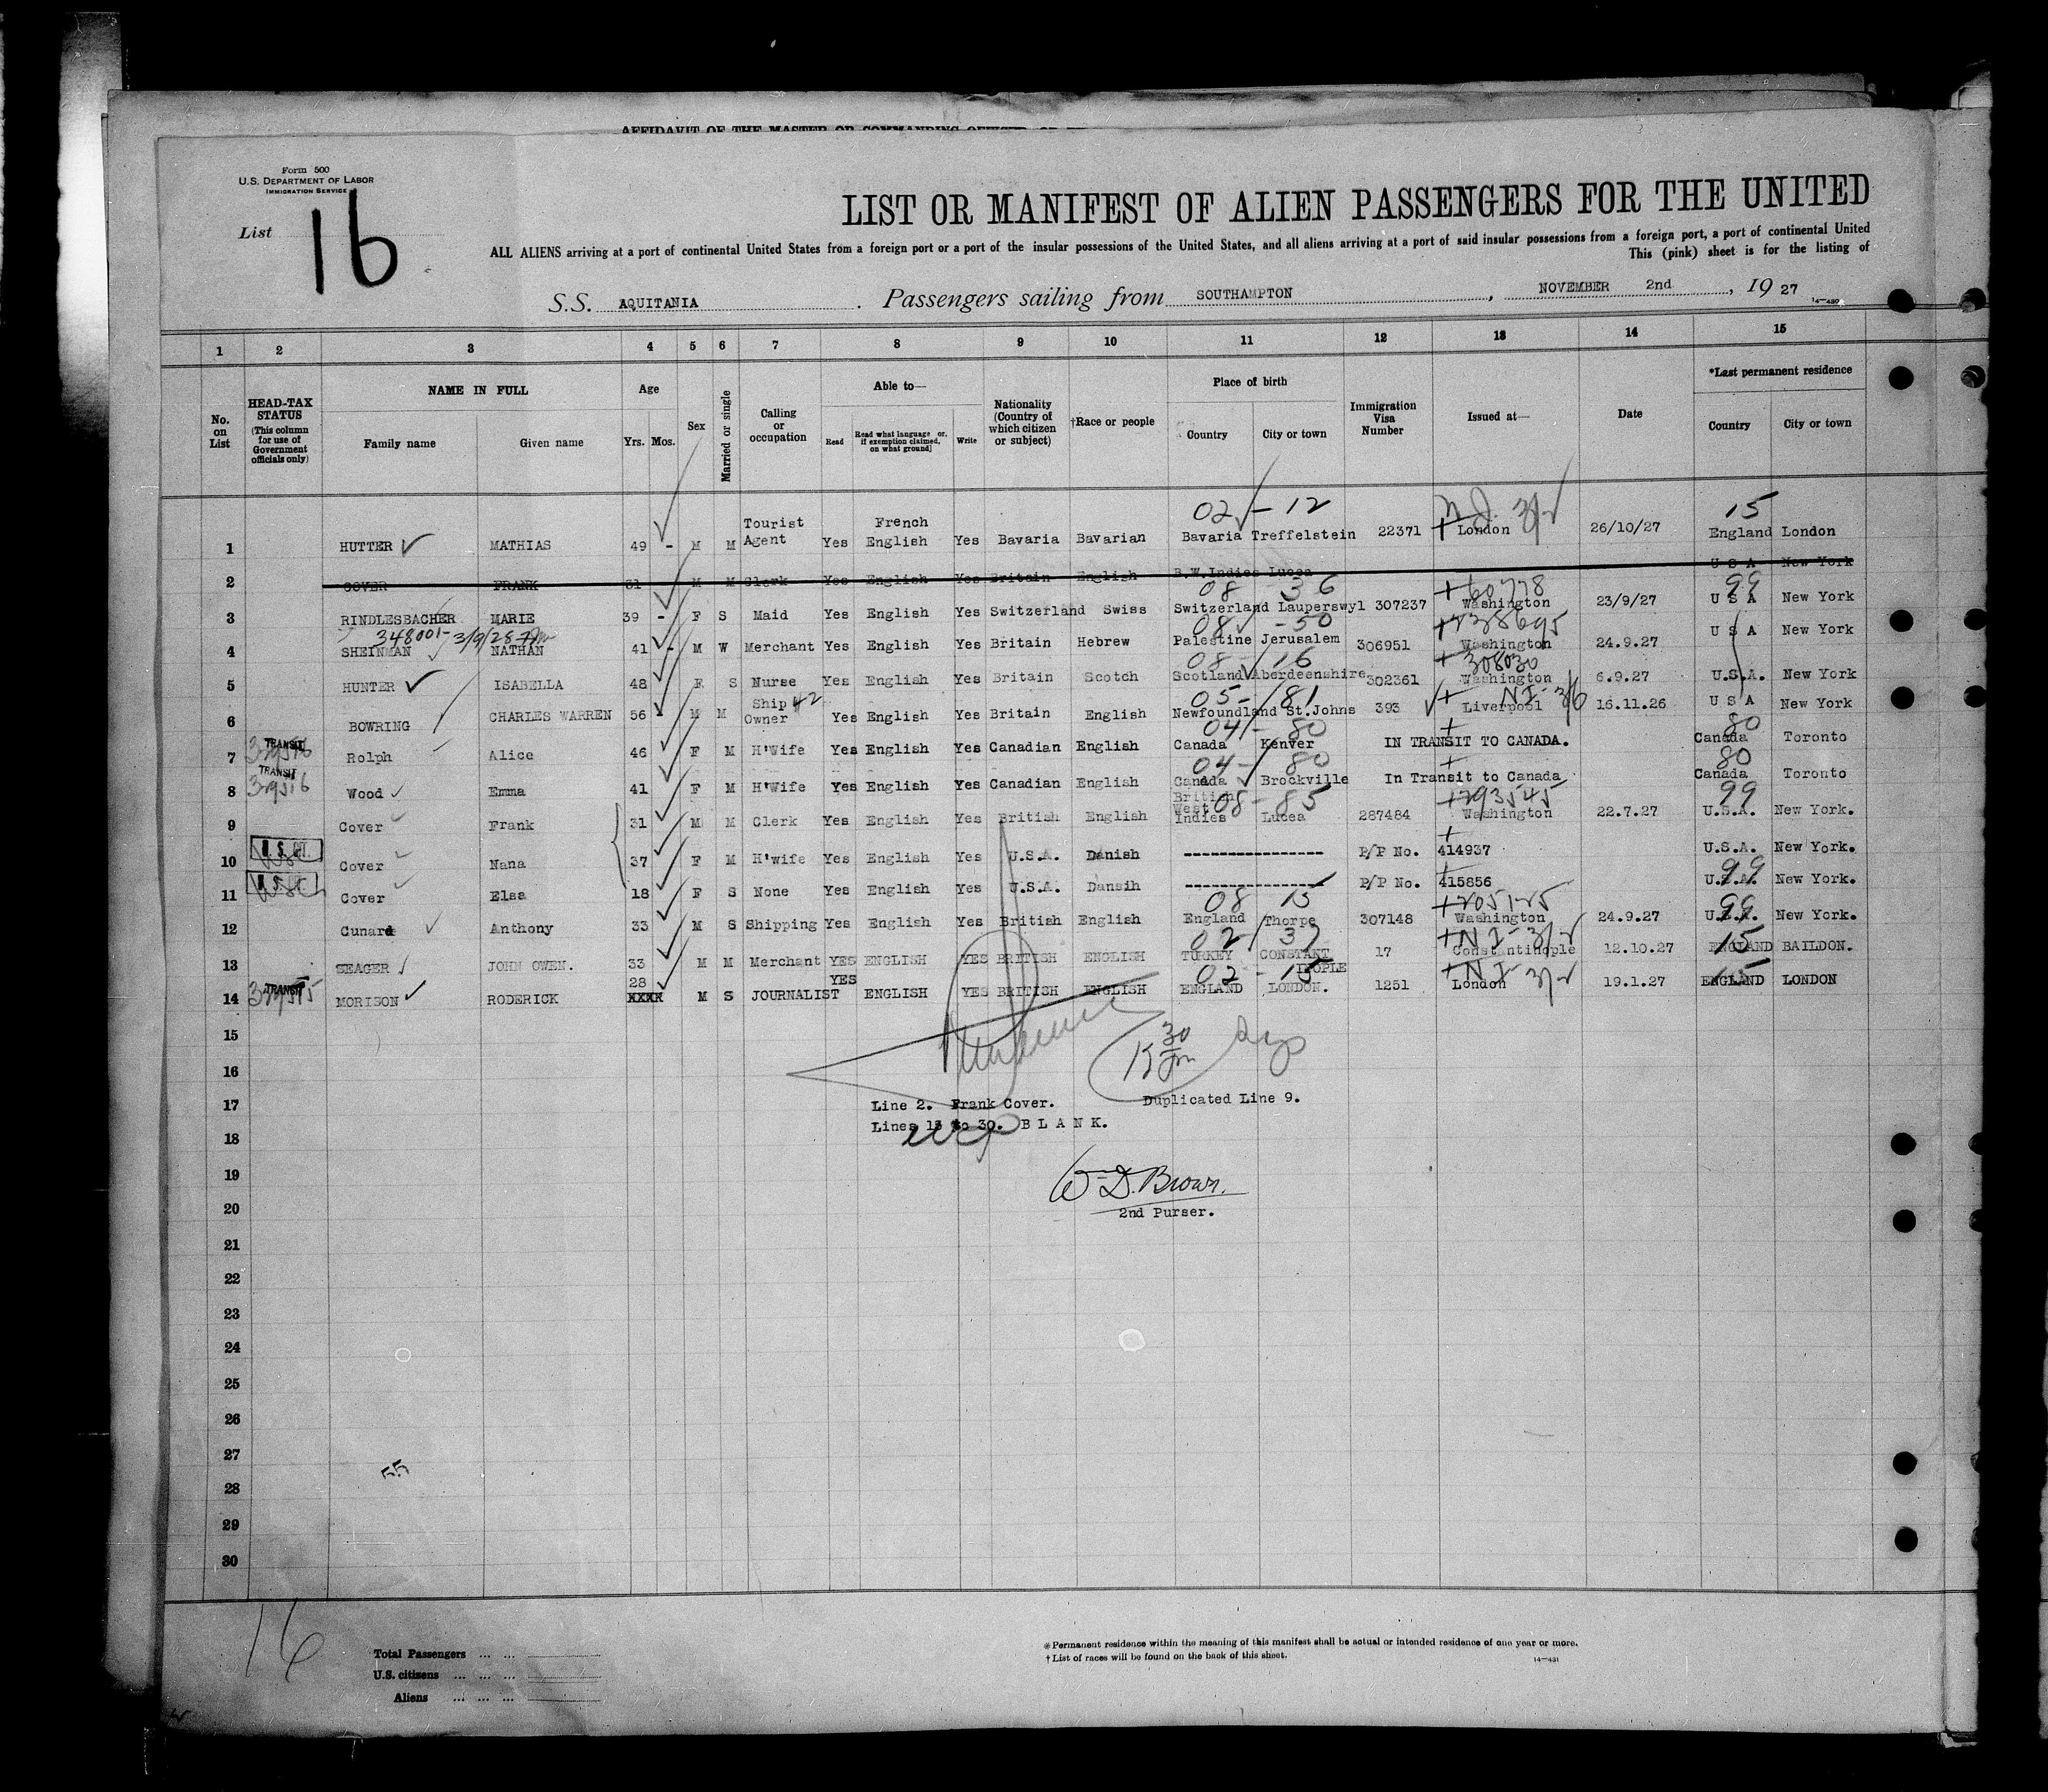 AFFIDAVIT OF THE MASTER OR COMMANDING OFFICER, OR
Form 500
U.S. DEPARTMENT OF LABOR
IMMIGRATION SERVICE
List 16
LIST OR MANIFEST OF ALIEN PASSENGERS FOR THE UNITED
ALL ALIENS arriving at a port of continental United States from a foreign port or a port of the insular possessions of the United States, and all aliens arriving at a port of said insular possessions from a foreign port, a port of continental United
This (pink) sheet is for the listing of
S.S. AQUITANIA. Passengers sailing from SOUTHAMPTON, NOVEMBER 2nd, 1927
14-430
1 2 3 4 5 6 7 8 9 10 11 12 13 14 15
No. on List
HEAD-TAX STATUS (This column for use of Government officials only)
NAME IN FULL
Family name Given name
Age
Yrs. Mos.
Sex
Married or single
Calling or occupation
Able to—
Read Read what language or, if exemption claimed, on what ground] Write
Nationality (Country of which citizen or subject)
†Race or people
Place of birth
Country City or town
Immigration Visa Number
Issued at—
Date
*Last permanent residence
Country City or town
02 - 12 15
1 HUTTER MATHIAS 49 - M M Tourist Agent Yes French English Yes Bavaria Bavarian Bavaria Treffelstein 22371 London 26/10/27 England London
2 COVER FRANK 31 M M Clerk Yes English Yes Britain English B.W.Indies Lucea U S A New York
08 36 +60778 99
3 RINDLESBACHER MARIE 39 - F S Maid Yes English Yes Switzerland Swiss Switzerland Lauperswyl 307237 Washington 23/9/27 U S A New York
348001- 3/9/28 08 - 50 +238695
4 SHEINMAN NATHAN 41 - M W Merchant Yes English Yes Britain Hebrew Palestine Jerusalem 306951 Washington 24.9.27 U S A New York
08 - 16 +308030
5 HUNTER ISABELLA 48 F S Nurse Yes English Yes Britain Scotch Scotland Aberdeenshire 302361 Washington 6.9.27 U.S.A. New York
42 05 - 81 + NI- 3/6
6 BOWRING CHARLES WARREN 56 - M M Ship Owner Yes English Yes Britain English Newfoundland St.Johns 393 Liverpool 16.11.26 U S A New York
TRANSIT 04 - 80 + 80
7 Rolph Alice 46 F M H'Wife Yes English Yes Canadian English Canada Kenver IN TRANSIT TO CANADA. Canada Toronto
TRANSIT 04 - 80 + 80
8 Wood Emma 41 F M H'Wife Yes English Yes Canadian English Canada Brockville In Transit to Canada Canada Toronto
08 - 85 +293545 99
9 Cover Frank 31 M M Clerk Yes English Yes British English British West Indies Lucea 287484 Washington 22.7.27 U.S.A. New York.
U.S. CIT.
10 Cover Nana 37 F M H'wife Yes English Yes U.S.A. Danish ---------------- P/P No. 414937 U.S.A. New York.
11 Cover Elsa 18 F S None Yes English Yes U.S.A. Dansih ---------------- P/P No. 415856 U.S.A. New York. 99
08 15 +205125 99
12 Cunard Anthony 33 M S Shipping Yes English Yes British English England Thorpe 307148 Washington 24.9.27 U.S.A. New York.
02 37 +NI- 3/2 15
13 SEAGER JOHN OWEN. 33 M M Merchant YES ENGLISH YES BRITISH ENGLISH TURKEY CONSTANTINOPLE 17 Constantinople 12.10.27 ENGLAND BAILDON.
TRANSIT 02 - 15 +NI- 3/2 15
14 MORISON RODERICK 28 XXXX M S JOURNALIST YES ENGLISH YES BRITISH ENGLISH ENGLAND LONDON. 1251 London 19.1.27 ENGLAND LONDON
15
16
17 Line 2. Frank Cover. Duplicated Line 9.
Lines 15 to 30. B L A N K.
18
19 Wm D. Brown.
20 2nd Purser.
21
22
23
24
25
26
27
55
28
29
30
16
Total Passengers ... ...
U.S. citizens ... ... ...
Aliens ... ... ...
*Permanent residence within the meaning of this manifest shall be actual or intended residence of one year or more.
†List of races will be found on the back of this sheet. 14-431